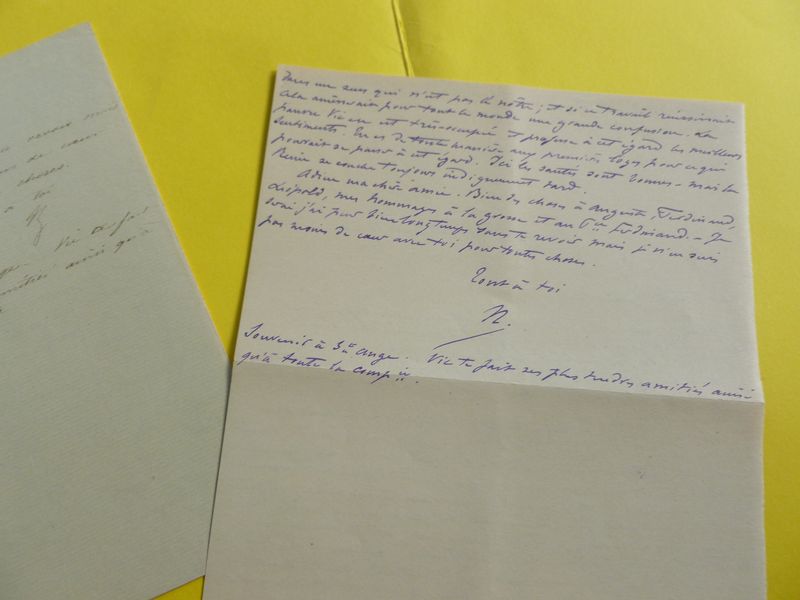 reverrai mais
de cœur
choses.
à toi
N.
dans un sens qui n'est pas le nôtre; et si ce travail réussissait
cela amènerait pour tout le monde une grande confusion. Le
pauvre Vic en est très-occupé et professe à cet égard les meilleurs
sentiments. Tu es de toute manière aux premières loges pour ce qui
pourrait se passer à cet égard. Ici les santés sont bonnes - mais la
Reine se couche toujours indignement tard.
Adieu ma chère amie. Bien des choses à Auguste, Ferdinand,
Léopold, mes hommages à la grosse et au Ferdinand. - Je
serai j'ai peur bien longtemps sans te revoir mais je n'en suis
pas moins de cœur avec toi pour toutes choses.
Tout à toi
N.
Souvenir à Ste Ange. Vic te fait ses plus tendres amitiés ainsi
qu'à toute la compie.